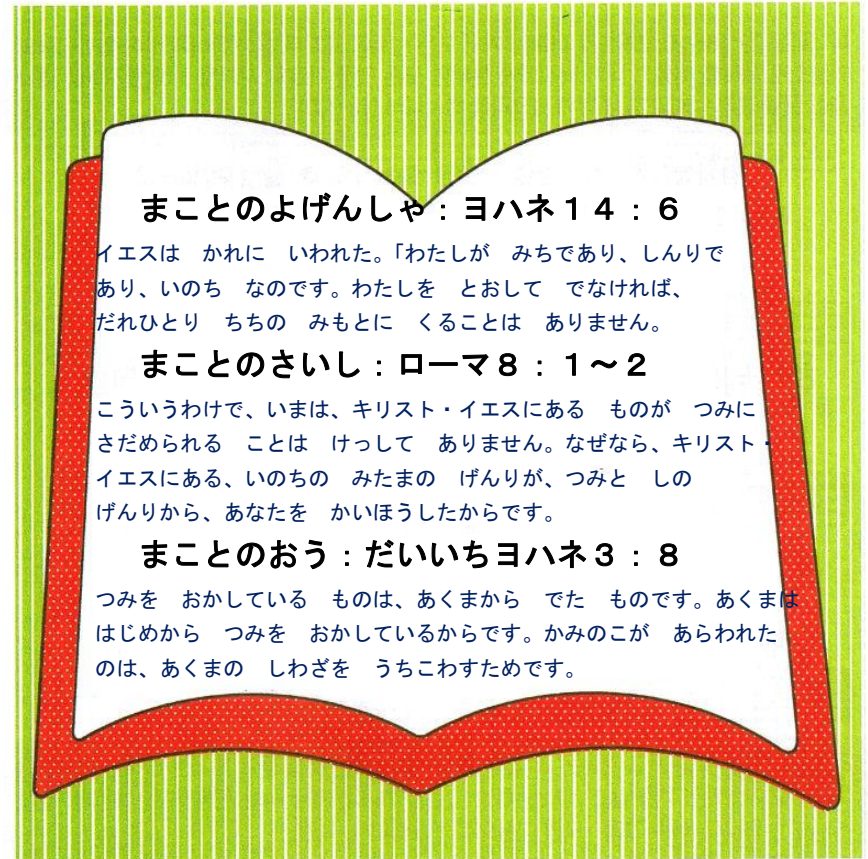 まことのよげんしゃ：ヨハネ１４：６
イエスは　かれに　いわれた。「わたしが　みちであり、しんりで
あり、いのち　なのです。わたしを　とおして　でなければ、
だれひとり　ちちの　みもとに　くることは　ありません。
まことのさいし：ローマ８：１～２
こういうわけで、いまは、キリスト・イエスにある　ものが　つみに
さだめられる　ことは　けっして　ありません。なぜなら、キリスト・
イエスにある、いのちの　みたまの　げんりが、つみと　しの
げんりから、あなたを　かいほうしたからです。
まことのおう：だいいちヨハネ３：８
つみを　おかしている　ものは、あくまから　でた　ものです。あくまは
はじめから　つみを　おかしているからです。かみのこが　あらわれた
のは、あくまの　しわざを　うちこわすためです。